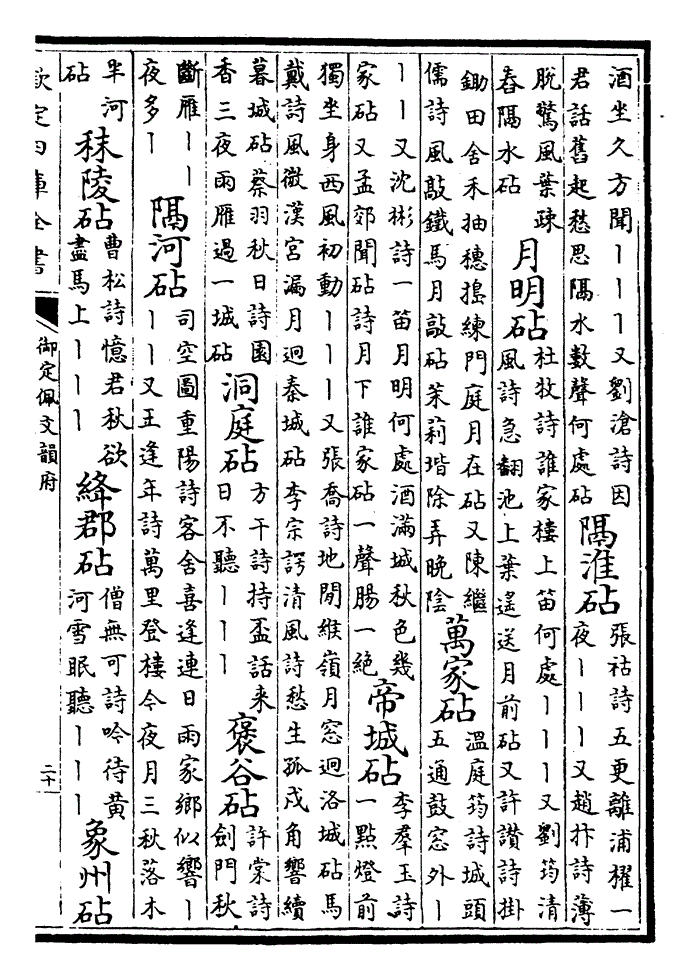 酒坐久方聞丨丨丨又劉滄詩因
君話舊起愁思隔水數聲何處砧
隔淮砧
張祜詩五更離浦櫂一
夜丨丨丨又趙抃詩薄
脫驚風葉疎
舂隔水砧
月明砧
杜牧詩誰家樓上笛何處丨丨丨又劉筠清
風詩急翻池上葉遙送月前砧又許讚詩掛
鋤田舍禾抽穗搗練門庭月在砧又陳繼
儒詩風敲鐵馬月敲砧茉莉堦除弄晚陰
萬家砧
溫庭筠詩城頭
五通鼓窓外丨
丨丨又沈彬詩一笛月明何處酒滿城秋色幾
家砧又孟郊聞砧詩月下誰家砧一聲腸一絕
帝城砧
李羣玉詩
一點燈前
獨坐身西風初動丨丨丨又張喬詩地閒緱嶺月窓迥洛城砧馬
戴詩風微漢宮漏月迥秦城砧李宗諤清風詩愁生孤戍角響續
暮城砧蔡羽秋日詩園
香三夜雨雁過一城砧
洞庭砧
方干詩持盃話来
日不聽丨丨丨
褒谷砧
許棠詩
劍門秋
斷雁丨丨
夜多丨
隔河砧
司空圖重陽詩客舍喜逢連日雨家鄉似響丨
丨丨又王逢年詩萬里登樓今夜月三秋落木
半河
砧
秣陵砧
曹松詩憶君秋欲
盡馬上丨丨丨
絳郡砧
僧無可詩吟待黃
河雪眠聽丨丨丨
象州砧
欽定四庫全書
御定佩文韻府
二十